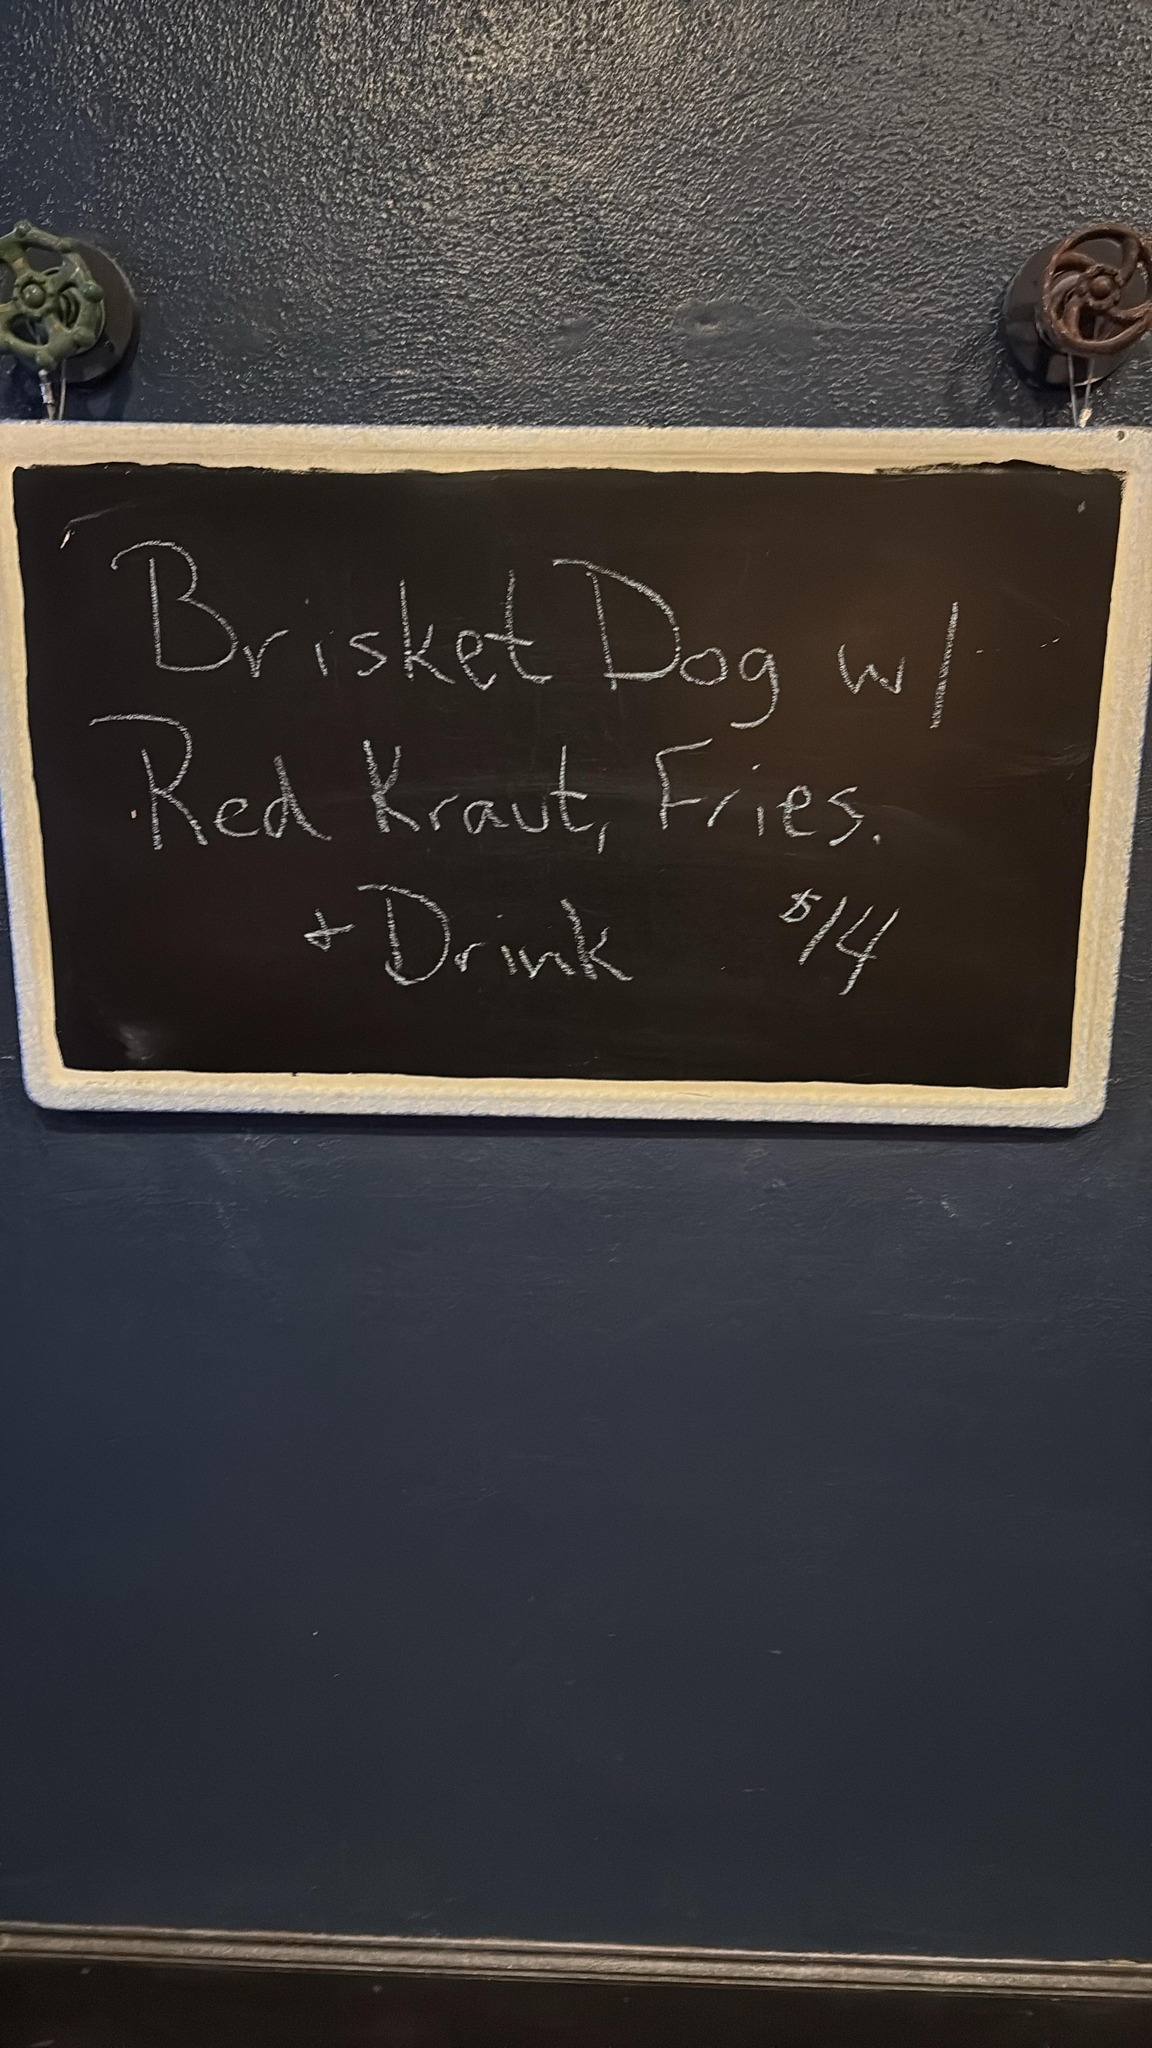 Brisket Dog w/
Red Kraut, Fries.
+ Drink $14